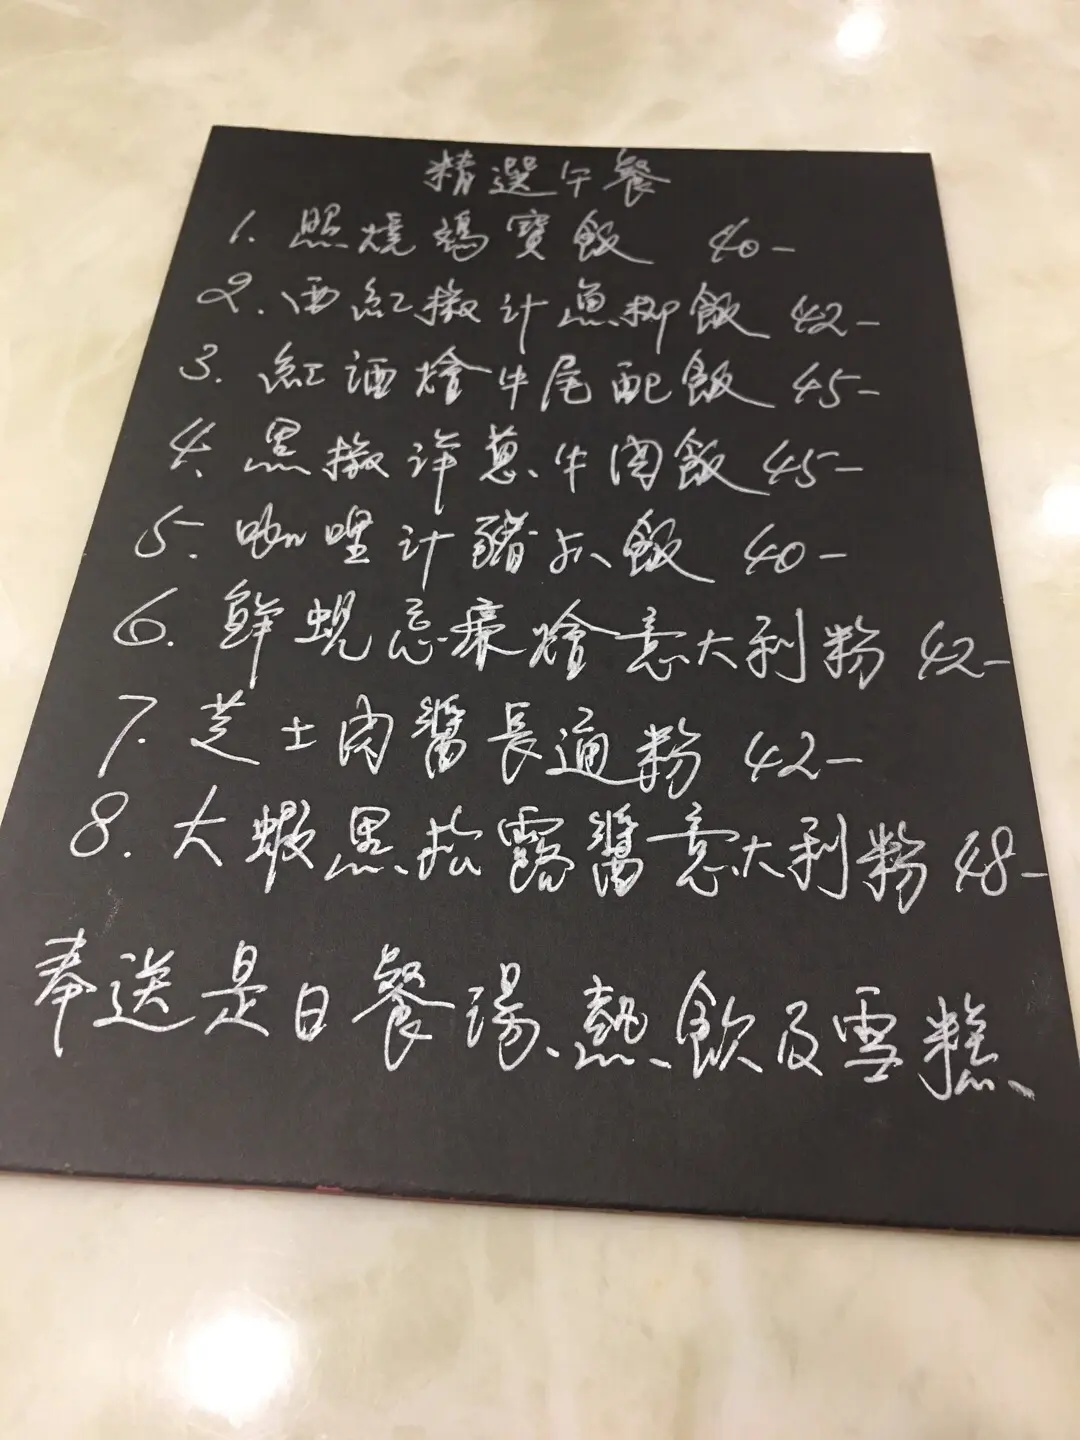 精選午餐
1. 照燒鷄寶飯 40-
2. 西紅椒汁魚柳飯 42-
3. 紅酒燴牛尾配飯 45-
4. 黑椒洋蔥牛肉飯 45-
5. 咖喱汁豬扒飯 40-
6. 鮮蜆忌廉燴意大利粉 42-
7. 芝士肉醬長通粉 42-
8. 大蝦黑松露醬意大利粉 48-
奉送是日餐湯、熱飲及雪糕